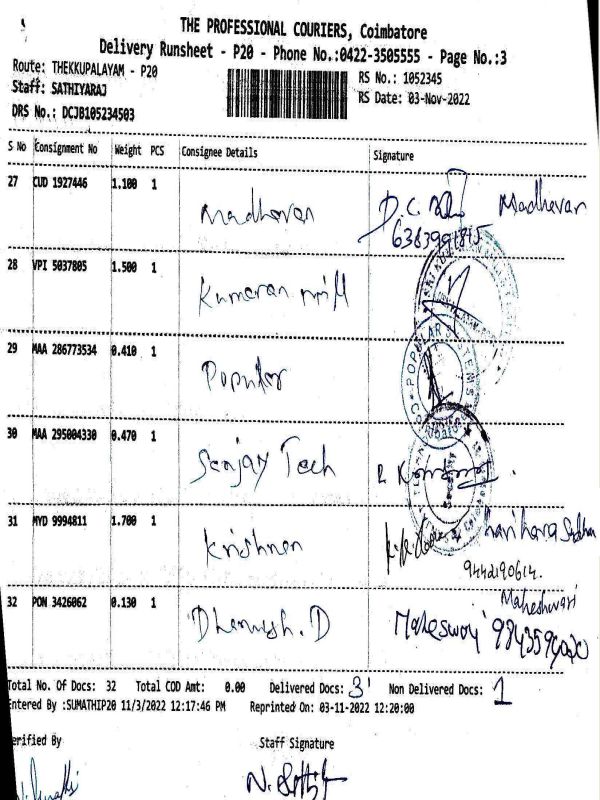 THE PROFESSIONAL COURIERS, Coimbatore
Delivery Runsheet - P20 - Phone No.:0422-3505555 - Page No.:3
Route: THEKKUPALAYAM - P20
RS No.: 1052345
Staff: SATHIYARAJ
RS Date: 03-Nov-2022
DRS No.: DCJB105234503
S No Consignment No Weight PCS Consignee Details Signature
27 CUD 1927446 1.100 1 Madhavan D.C. Madhavan
6383991815
28 VPI 5037805 1.500 1 Kumaran mill
29 MAA 286773534 0.410 1 Popular
POPULAR SYSTEMS
30 MAA 295004330 0.470 1 Sanjay Tech
Security
31 MYD 9994811 1.700 1 Krishnan
9442190614.
32 PON 3426062 0.130 1 Dhanush. D Maheswari
Maheshwari
Total No. Of Docs: 32 Total COD Amt: 0.00 Delivered Docs: 31 Non Delivered Docs: 1
Entered By :SUMATHIP20 11/3/2022 12:17:46 PM Reprinted On: 03-11-2022 12:20:00
erified By Staff Signature